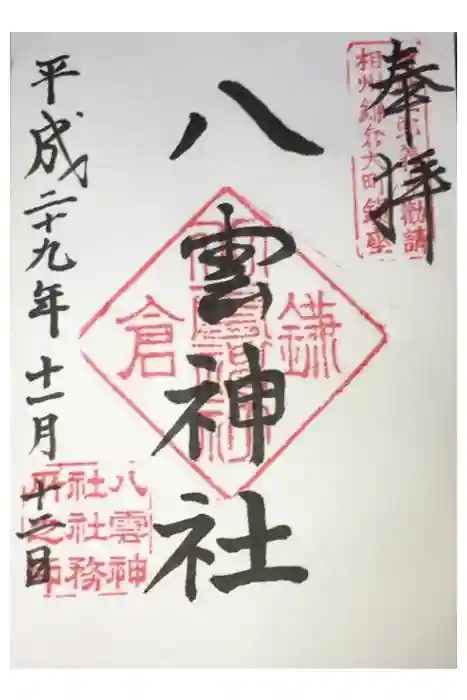 奉拝
相州鎌倉大町鎮座
八雲神社
鎌倉
八雲神
社社務
所之印
平成二十九年十一月十二日